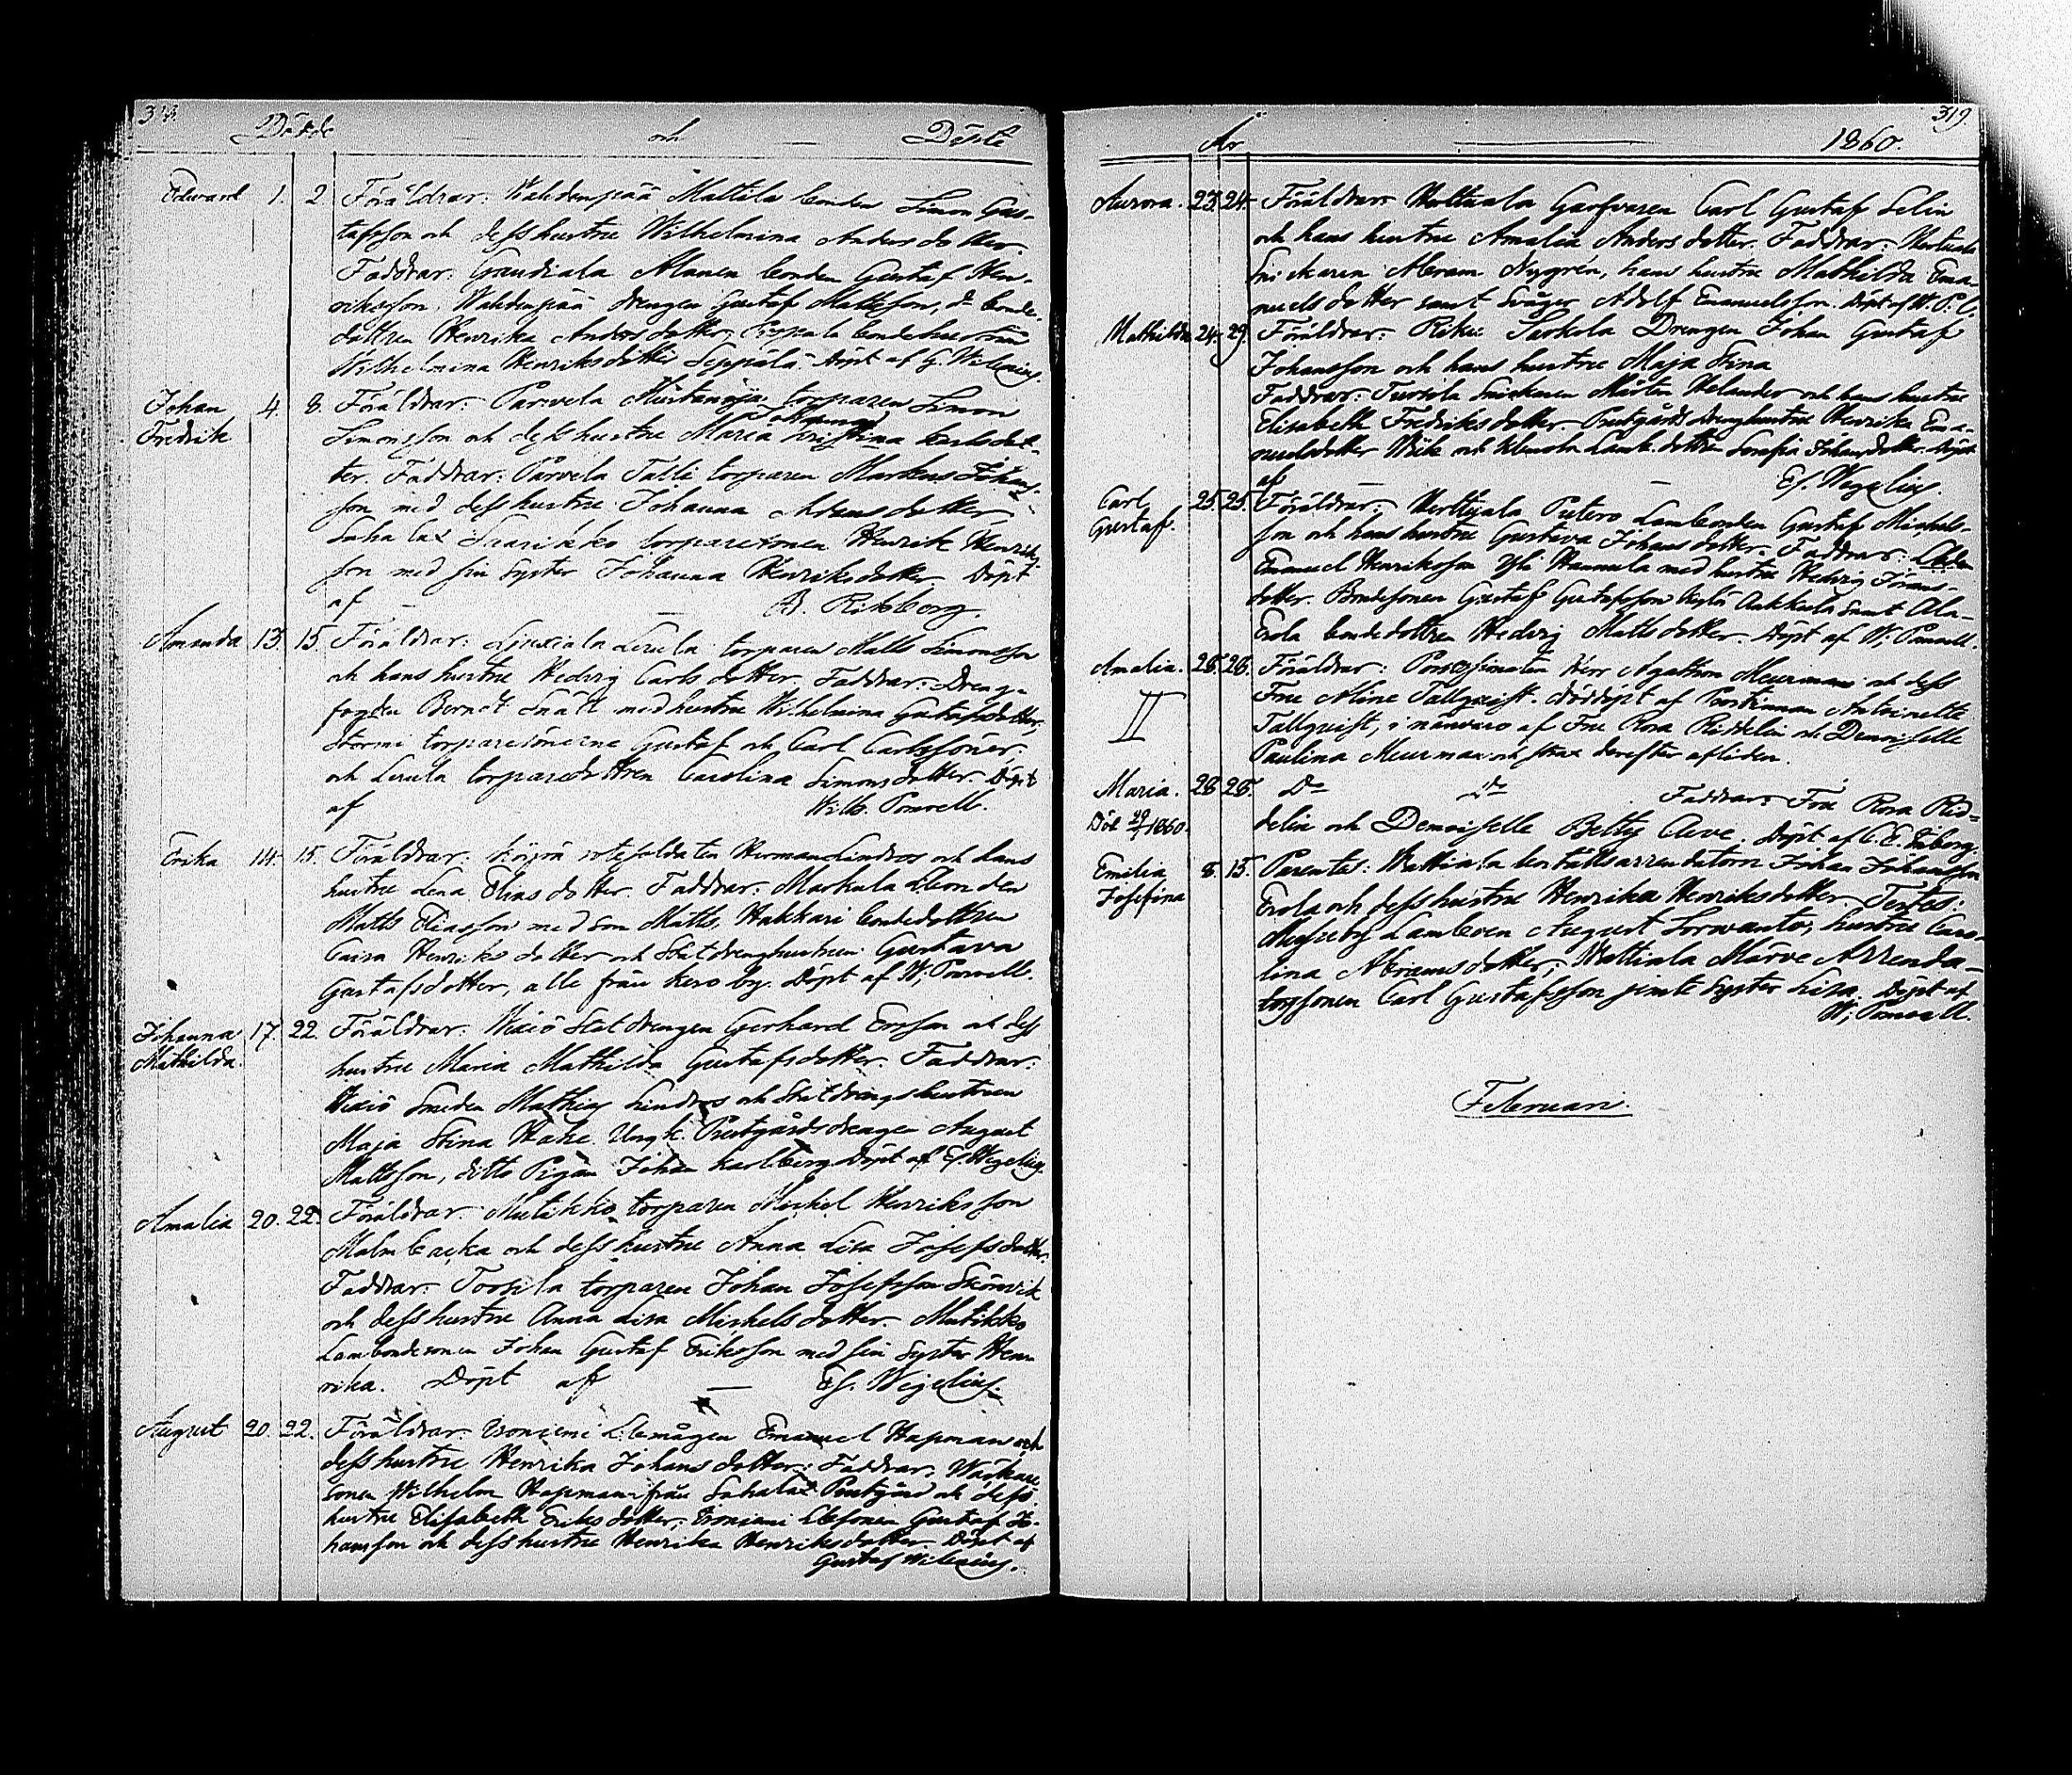 Födde och Döpte
Edward 1. 2. Föräldrar: Wahdenpää Mattila bonden Simon Gus-
tafsson och dess hustru Wilhelmina Anders dotter
Faddrar: Gaudiala Alanen bonden Gustaf Hen-
riksson, Wahdenpää drengen Gustaf Mattsson, d:o bonde-
dottren Henrika Anders dotter, bondehustrun
Wilhelmina Henriksdotter Seppälä. Döpt af G. Wilenius.
Johan 4. 8. Föräldrar: Parvela Mustanoja torparen Simon
Fredrik Simonsson och dess hustru Maria Kristina Carlsdot-
ter. Faddrar: Parvela Talli torparen Markus Johans-
son med dess hustru Johanna Adams dotter,
Sahalax Saarikko torparesonen Henrik Henriks-
son med sin Syster Johanna Henriksdotter. Döpt
af — — A. Rikberg.
Amanda 13. 15. Föräldrar: Liuxiala Lirula torparen Matts Simonsson
och hans hustru Hedvig Carls dotter. Faddrar: Dreng-
fogden Berndt Snäll med hustru Wilhelmina Gustafsdotter,
Stormi torparesönerne Gustaf och Carl Carlssöner.
och Lirula torparedottren Carolina Simonsdotter. Döpt
af Wilh. Ponsell.
Erika 14. 15. Föräldrar: rotesoldaten Herman Lindros och hans
hustru Lena Elias dotter. Faddrar: Markula
Matts Eliasson med son Matts, Hakkari bondedottren
Caisa Henriks dotter och Statdrenghustrun Gustava
Gustafsdotter, alla från Kero by. Döpt af W. Ponsell.
Johanna 17. 22. Föräldrar: Wexiö Statdrengen Gerhard Ersson och dess
Mathilda. hustru Maria Mathilda Gustafsdotter. Faddrar:
Wexiö Smeden Mathias Lindros och Statdrengshustrun
Maja Stina Hake. Ungk. Prestgårds drengen August
Mattsson, ditto Pigan Johan Karlberg. Döpt af Es. Wegelius.
Amalia 20. 22. Föräldrar: Mutikko torparen Mickel Henriksson
Malmbacka och dess hustru Anna Lisa Josefsdotter.
Faddrar: Torsila torparen Johan Josefsson
och dess hustru Anna Lisa Mickels dotter. Mutikko
Lanbondesonen Johan Gustaf Eriksson med sin Syster Hen-
rika. Döpt af — Es. Wegelius.
August 20. 22. Föräldrar: Isoniemi Emanuel Hapman och
dess hustru Henrika Johans dotter: Faddrar:
sonen Wilhelm Hapman ifrån Sahalax Prestgård och dess
hustru Elisabeth Eriks dotter; Isoniemi Gustaf Jo-
hansson och dess hustru Henrika Henriksdotter. Döpt af
Gustaf Wilenius.
319.
År — 1860.
Aurora. 23. 24. Föräldrar: Herttuala Garfvaren Carl Gustaf Selin
och hans hustru Amalia Anders dotter. Faddrar: Herttuala
Snickaren Abram Nygrén, hans hustru Mathilda Ema-
nuels dotter samt Svåger Adolf Emanuelsson. Döpt af W. P.
Mathilda 24. 29. Föräldrar: Riku Sarkola Drengen Johan Gustaf
Johansson och hans hustru Maja Stina
Faddrar: Tursola Snickaren Mårten Helander och hans hustru
Elisabeth Fredriksdotter. Prestgårds drenghustrun Henrika Ema-
nuelsdotter och dotter Serafia Johansdotter. Döpt
af — Es. Wegelius.
Carl 25. 25. Föräldrar: Herttuala Putero Lanbonden Gustaf Mickels-
Gustaf. son och hans hustru Gustava Johans dotter. Faddrar:
Emanuel Henriksson Yli Hannula med hustru Hedvig Frans-
dotter. Bondesonen Gustaf Gustafsson Aakkula samt Ala-
Erola bondedottren Hedvig Matts dotter. Döpt af W. Ponsell.
Amalia. 26. 26. Föräldrar: Possessionaten Herr Agathon Meurman och dess
II Fru Aline Tallqvist. Nöddöpt af Antoinette
Tallqvist, i närvaro af Fru Rosa Riddelin och Demoiselle
Paulina Meurman och strax derefter afliden.
Maria. 26 26. D:o d:o Faddrar: Fru Rosa Rid-
Död 29/1 1860. delin och Demoiselle Betty Aeve. Döpt af C. E. Åberg.
Emilia 8. 15. Parentes: Wattiala Johan Johansson
Josefina Erola och dess hustru Henrika Henriksdotter. Testes:
August Sorwanto, hustru Caro-
lina Abrams dotter; Wattiala Märve Arrenda-
torssonen Carl Gustafsson jemte Syster Lisa. Döpt af
W. Ponsell.
Februari.